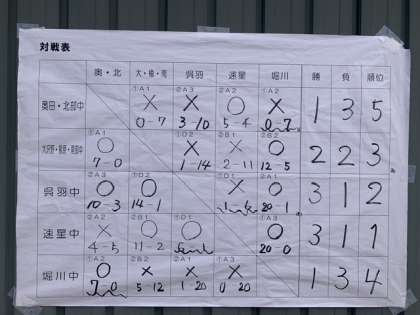 対戦表
奥・北 大・楡・南 呉羽 速星 堀川 勝 負 順位
奥田・北部中 ①A1 × 0-7 ②A3 × 3-10 ②A2 ○ 5-4 ①A2 × 0-7 1 3 5
①A1 ○ 7-0 ①D2 × 1-14 ②B1 × 2-11 ②B2 ○ 12-5 2 2 3
呉羽中 ②A3 ○ 10-3 ①D2 ○ 14-1 ①D1 × ②A1 ○ 20-1 3 1 2
速星中 ②A2 × 4-5 ②B1 ○ 11-2 ①D1 ○ ①A3 ○ 20-0 3 1 1
堀川中 ①A2 ○ 7-0 ②B2 × 5-12 ②A1 × 1-20 ①A3 × 0-20 1 3 4